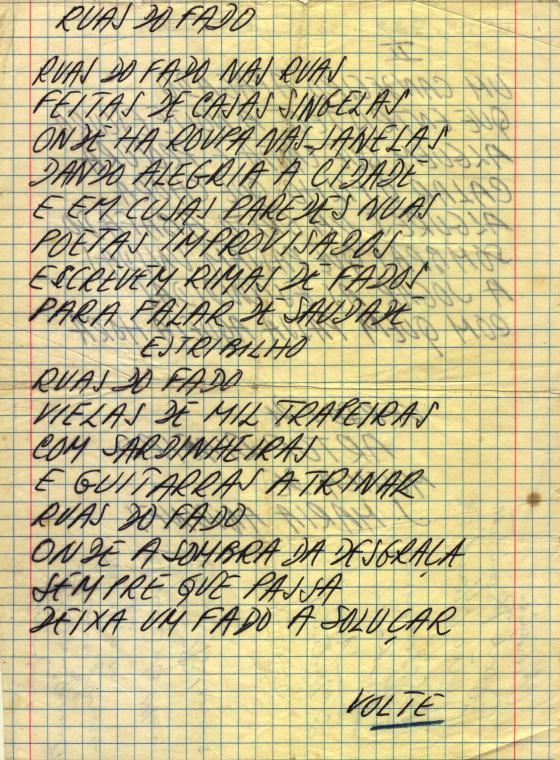 RUAS DO FADO
RUAS DO FADO NAS RUAS
FEITAS DE CASAS SINGELAS
ONDE HA ROUPA NAS JANELAS
DANDO ALEGRIA A CIDADE
E EM CUJAS PAREDES NUAS
POETAS IMPROVISADOS
ESCREVEM RIMAS DE FADOS
PARA FALAR DE SAUDADE
ESTRIBILHO
RUAS DO FADO
VIELAS DE MIL TRAPEIRAS
COM SARDINHEIRAS
E GUITARRAS A TRINAR
RUAS DO FADO
ONDE A SOMBRA DA DESGRAÇA
SEMPRE QUE PASSA
DEIXA UM FADO A SOLUÇAR
VOLTE